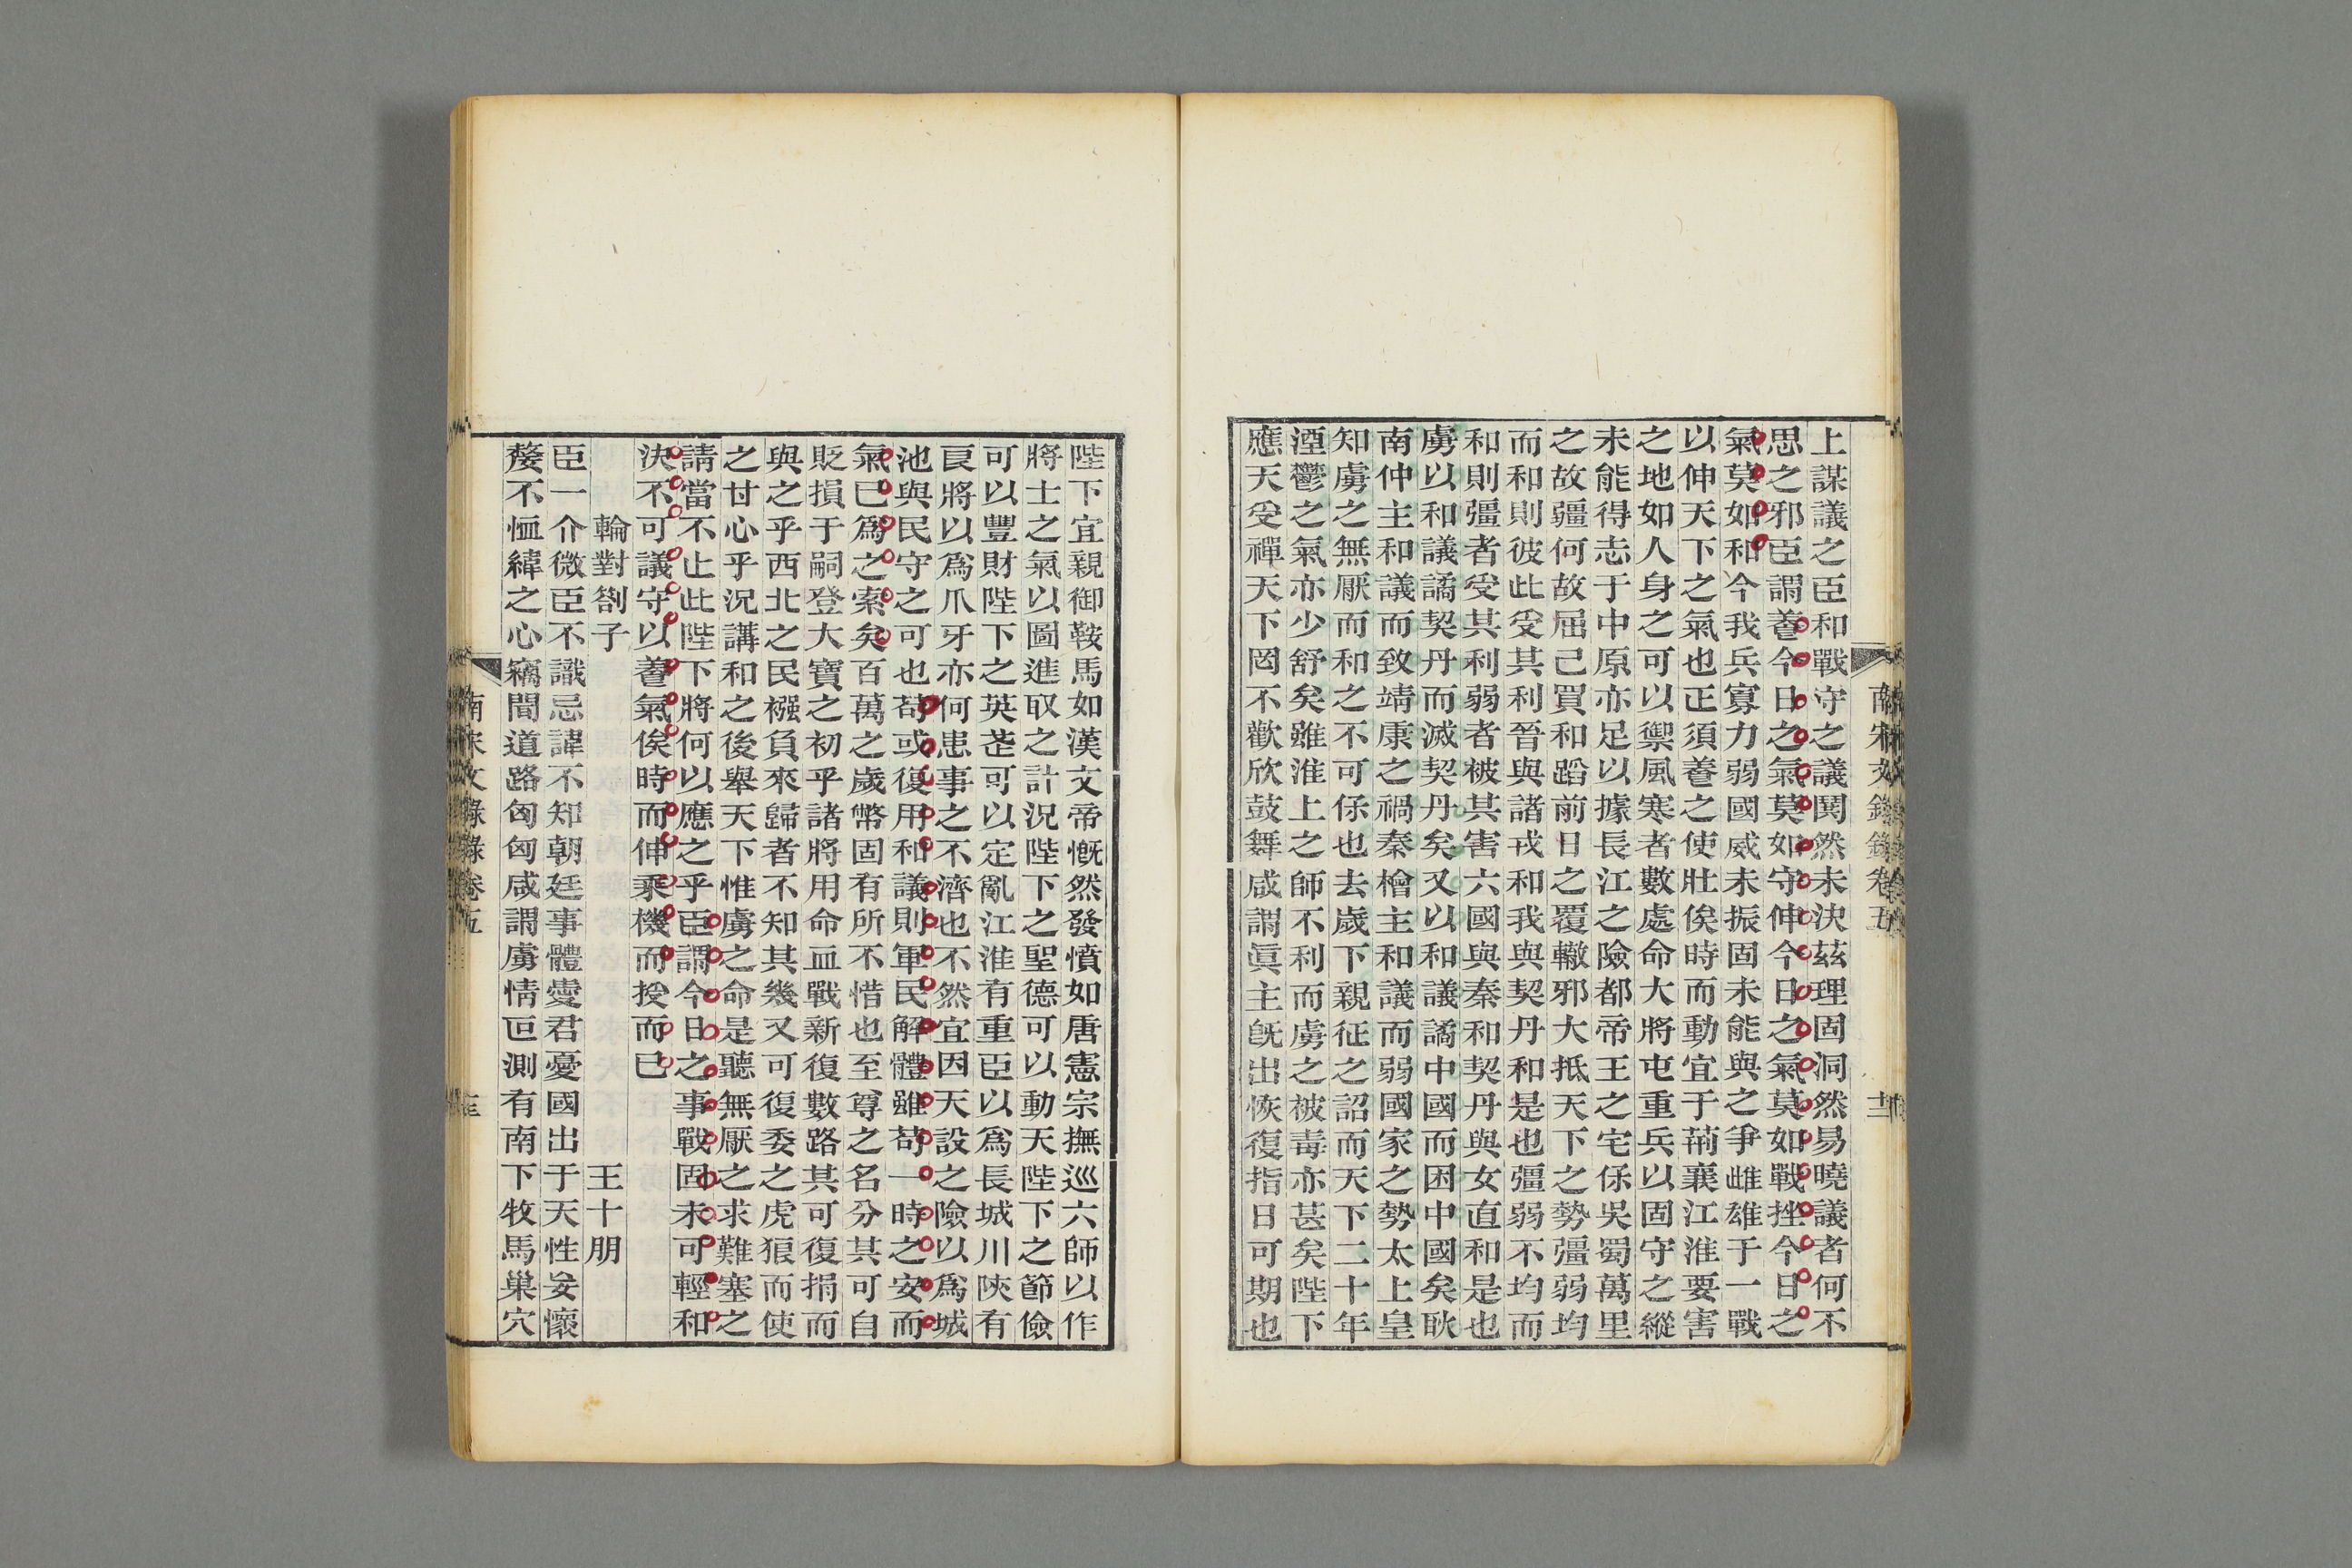 上謀議之臣和戰守之議鬨然未決茲理固洞然易曉議者何不
思之邪臣謂養今日之氣莫如守伸今日之氣莫如戰挫今日之
氣莫如和今我兵寡力弱國威未振固未能與之爭雌雄于一戰
以伸天下之氣也正須養之使壯俟時而動宜于荊襄江淮要害
之地如人身之可以禦風寒者數處命大將屯重兵以固守之縱
未能得志于中原亦足以據長江之險都帝王之宅保吳蜀萬里
之故疆何故屈己買和蹈前日之覆轍邪大抵天下之勢彊弱均
而和則彼此受其利晉與諸戎和我與契丹和是也彊弱不均而
和則彊者受其利弱者被其害六國與秦和契丹與女直和是也
虜以和議譎契丹而滅契丹矣又以和議譎中國而困中國矣耿
南仲主和議而致靖康之禍秦檜主和議而弱國家之勢太上皇
知虜之無厭而和之不可保也去歲下親征之詔而天下二十年
湮鬱之氣亦少舒矣雖淮上之師不利而虜之被毒亦甚矣陛下
應天受禪天下罔不歡欣鼓舞咸謂眞主旣出恢復指日可期也
南宋文錄錄卷五 十二
陛下宜親御鞍馬如漢文帝慨然發憤如唐憲宗撫巡六師以作
將士之氣以圖進取之計況陛下之聖德可以動天陛下之節儉
可以豐財陛下之英茫可以定亂江淮有重臣以爲長城川陝有
良將以爲爪牙亦何患事之不濟也不然宜因天設之險以爲城
池與民守之可也苟或復用和議則軍民解體雖苟一時之安而
氣已爲之索矣百萬之歲幣固有所不惜也至尊之名分其可自
貶損于嗣登大寶之初乎諸將用命血戰新復數路其可復捐而
與之乎西北之民襁負來歸者不知其幾又可復委之虎狼而使
之甘心乎況講和之後舉天下惟虜之命是聽無厭之求難塞之
請當不止此陛下將何以應之乎臣謂今日之事戰固未可輕和
決不可議守以養氣俟時而伸乘機而投而已
輪對劄子 王十朋
臣一介微臣不識忌諱不知朝廷事體愛君憂國出于天性妄懷
嫠不恤緯之心竊聞道路匈匈咸謂虜情叵測有南下牧馬巢穴
南宋文錄錄卷五 十三